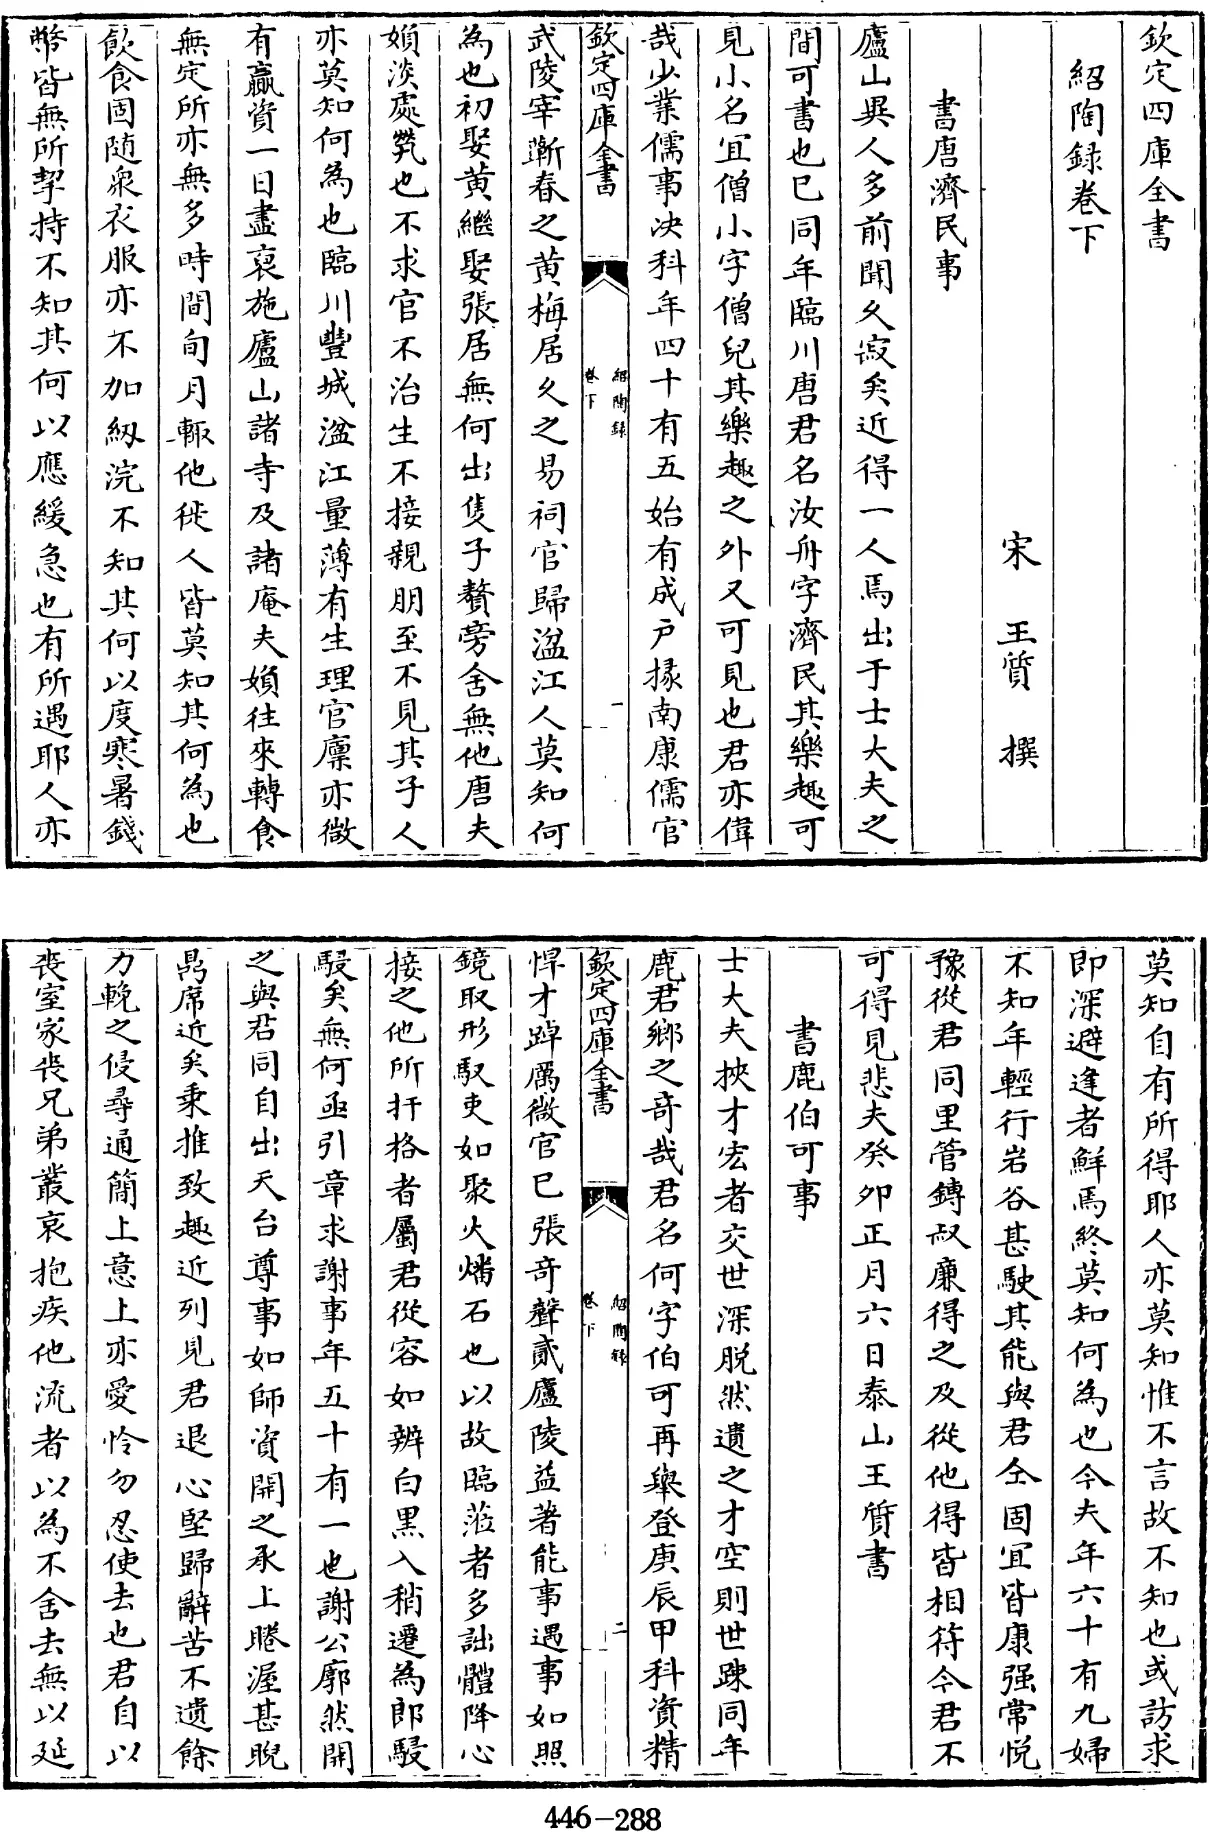 欽定四庫全書
紹陶録卷下
宋　王質　撰
書唐濟民事
廬山異人多前聞久寂矣近得一人焉出于士大夫之
間可書也已同年臨川唐君名汝舟字濟民其樂趣可
見小名宜僧小字僧兒其樂趣之外又可見也君亦偉
哉少業儒事決科年四十有五始有成戸掾南康儒官
欽定四庫全書
紹陶録
卷下
一
武陵宰蘄春之黄梅居久之易祠官歸湓江人莫知何
為也初娶黄繼娶張居無何出隻子贅旁舍無他唐夫
婦淡處煢也不求官不治生不接親朋至不見其子人
亦莫知何為也臨川豐城湓江量薄有生理官廪亦微
有贏資一日盡裒施廬山諸寺及諸庵夫婦往來轉食
無定所亦無多時間旬月輙他徙人皆莫知其何為也
飲食固随衆衣服亦不加紉浣不知其何以度寒暑錢
幣皆無所挈持不知其何以應緩急也有所遇耶人亦
莫知自有所得耶人亦莫知惟不言故不知也或訪求
即深避逢者鮮焉終莫知何為也今夫年六十有九婦
不知年輕行岩谷甚駛其能與君仝固宜皆康强常悦
豫從君同里管鏄叔廉得之及從他得皆相符今君不
可得見悲夫癸夘正月六日泰山王質書
書鹿伯可事
士大夫挾才宏者交世深脱然遺之才空則世踈同年
鹿君鄉之竒哉君名何字伯可再舉登庚辰甲科資精
欽定四庫全書
紹陶録
卷下
二
悍才踔厲微官已張竒聲貳廬陵益著能事遇事如照
鏡取形馭吏如聚火燔石也以故臨涖者多詘體降心
接之他所扞格者屬君從容如辨白黒入稍遷為郎駸
駸矣無何亟引章求謝事年五十有一也謝公廓然開
之與君同自出天台尊事如師資開之承上睠渥甚睨
爲席近矣秉推致趣近列見君退心堅歸辭苦不遺餘
力輓之侵尋通簡上意上亦愛怜勿忍使去也君自以
喪室家喪兄弟叢哀抱疾他流者以為不舍去無以延
446-288